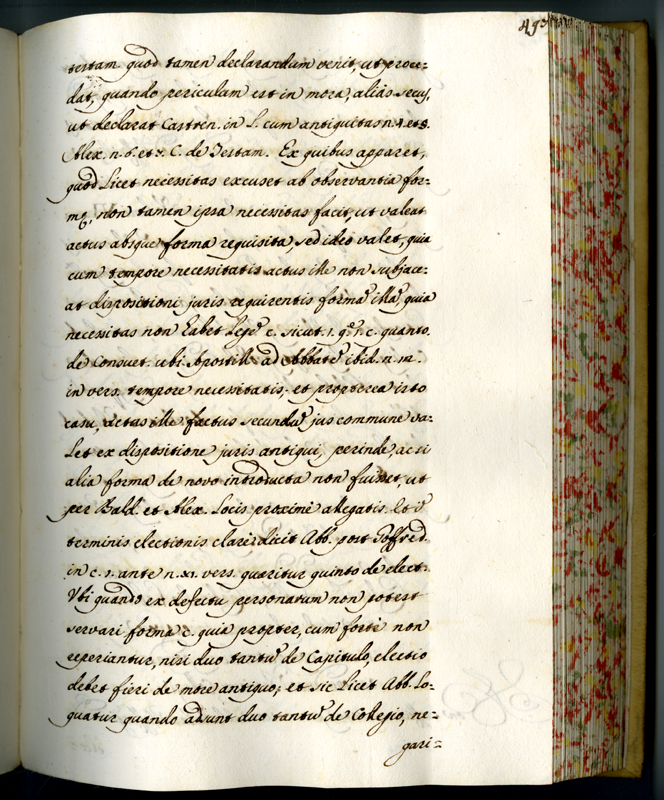 testam. quod tamen declarandum venit, ut proce=
dat, quando periculum est in mora, aliàs secus,
ut declarat Castren. in L. cum antiquitas n. 4. et 5.
Alex. n. 6. et 7. C. de Testam. Ex quibus apparet,
quod Licet necessitas excuset ab observantia for=
mę, non tamen ipsa necessitas facit, ut valeat
actus absque forma requisita, sed ideo valet, quia
cum tempore necessitatis actus ille non subjace=
at dispositioni juris requirentis formã illã, quia
necessitas non habet Legẽ c. sicut. 1. q. 1. c. quanto.
de Consuet. ubi Apostill. ad Abbatẽ ibid. n. 11.
in vers. tempore necessitatis, et propterea isto
casu, actus ille factus secundũ jus commune va=
Let ex dispositione juris antiqui, perinde ac si
alia forma de novo introducta non fuisset, ut
per Bald. et Alex. Locis proximè allegatis. Et ĩ
terminis electionis clariùs dicit Abb. post Joffred.
in c. 1. ante n. XI. vers. quæritur quinto de elect.
Vbi quando ex defectu personarum non potest
servari forma c. quia propter, cum fortè non
reperiantur, nisi duo tantũ de Capitulo, electio
debet fieri de more antiquo; et sic Licet Abb. Lo=
quatur quando adsunt duo tantũ de Collegio, ne=
gari=